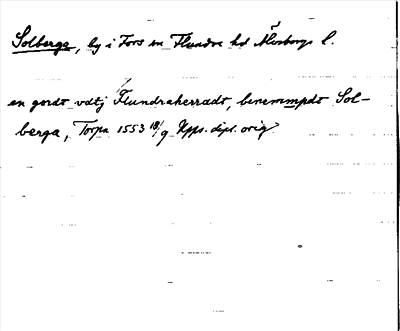 Solberga, by i Fors sn Flundre hd Älvsborgs l.
en gordt vdtj Flundraherradt, benemmpdt Sol-
berga, Torpa 1553 18/9 Upps. dipl. orig